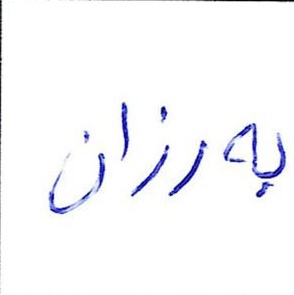 پەرزان